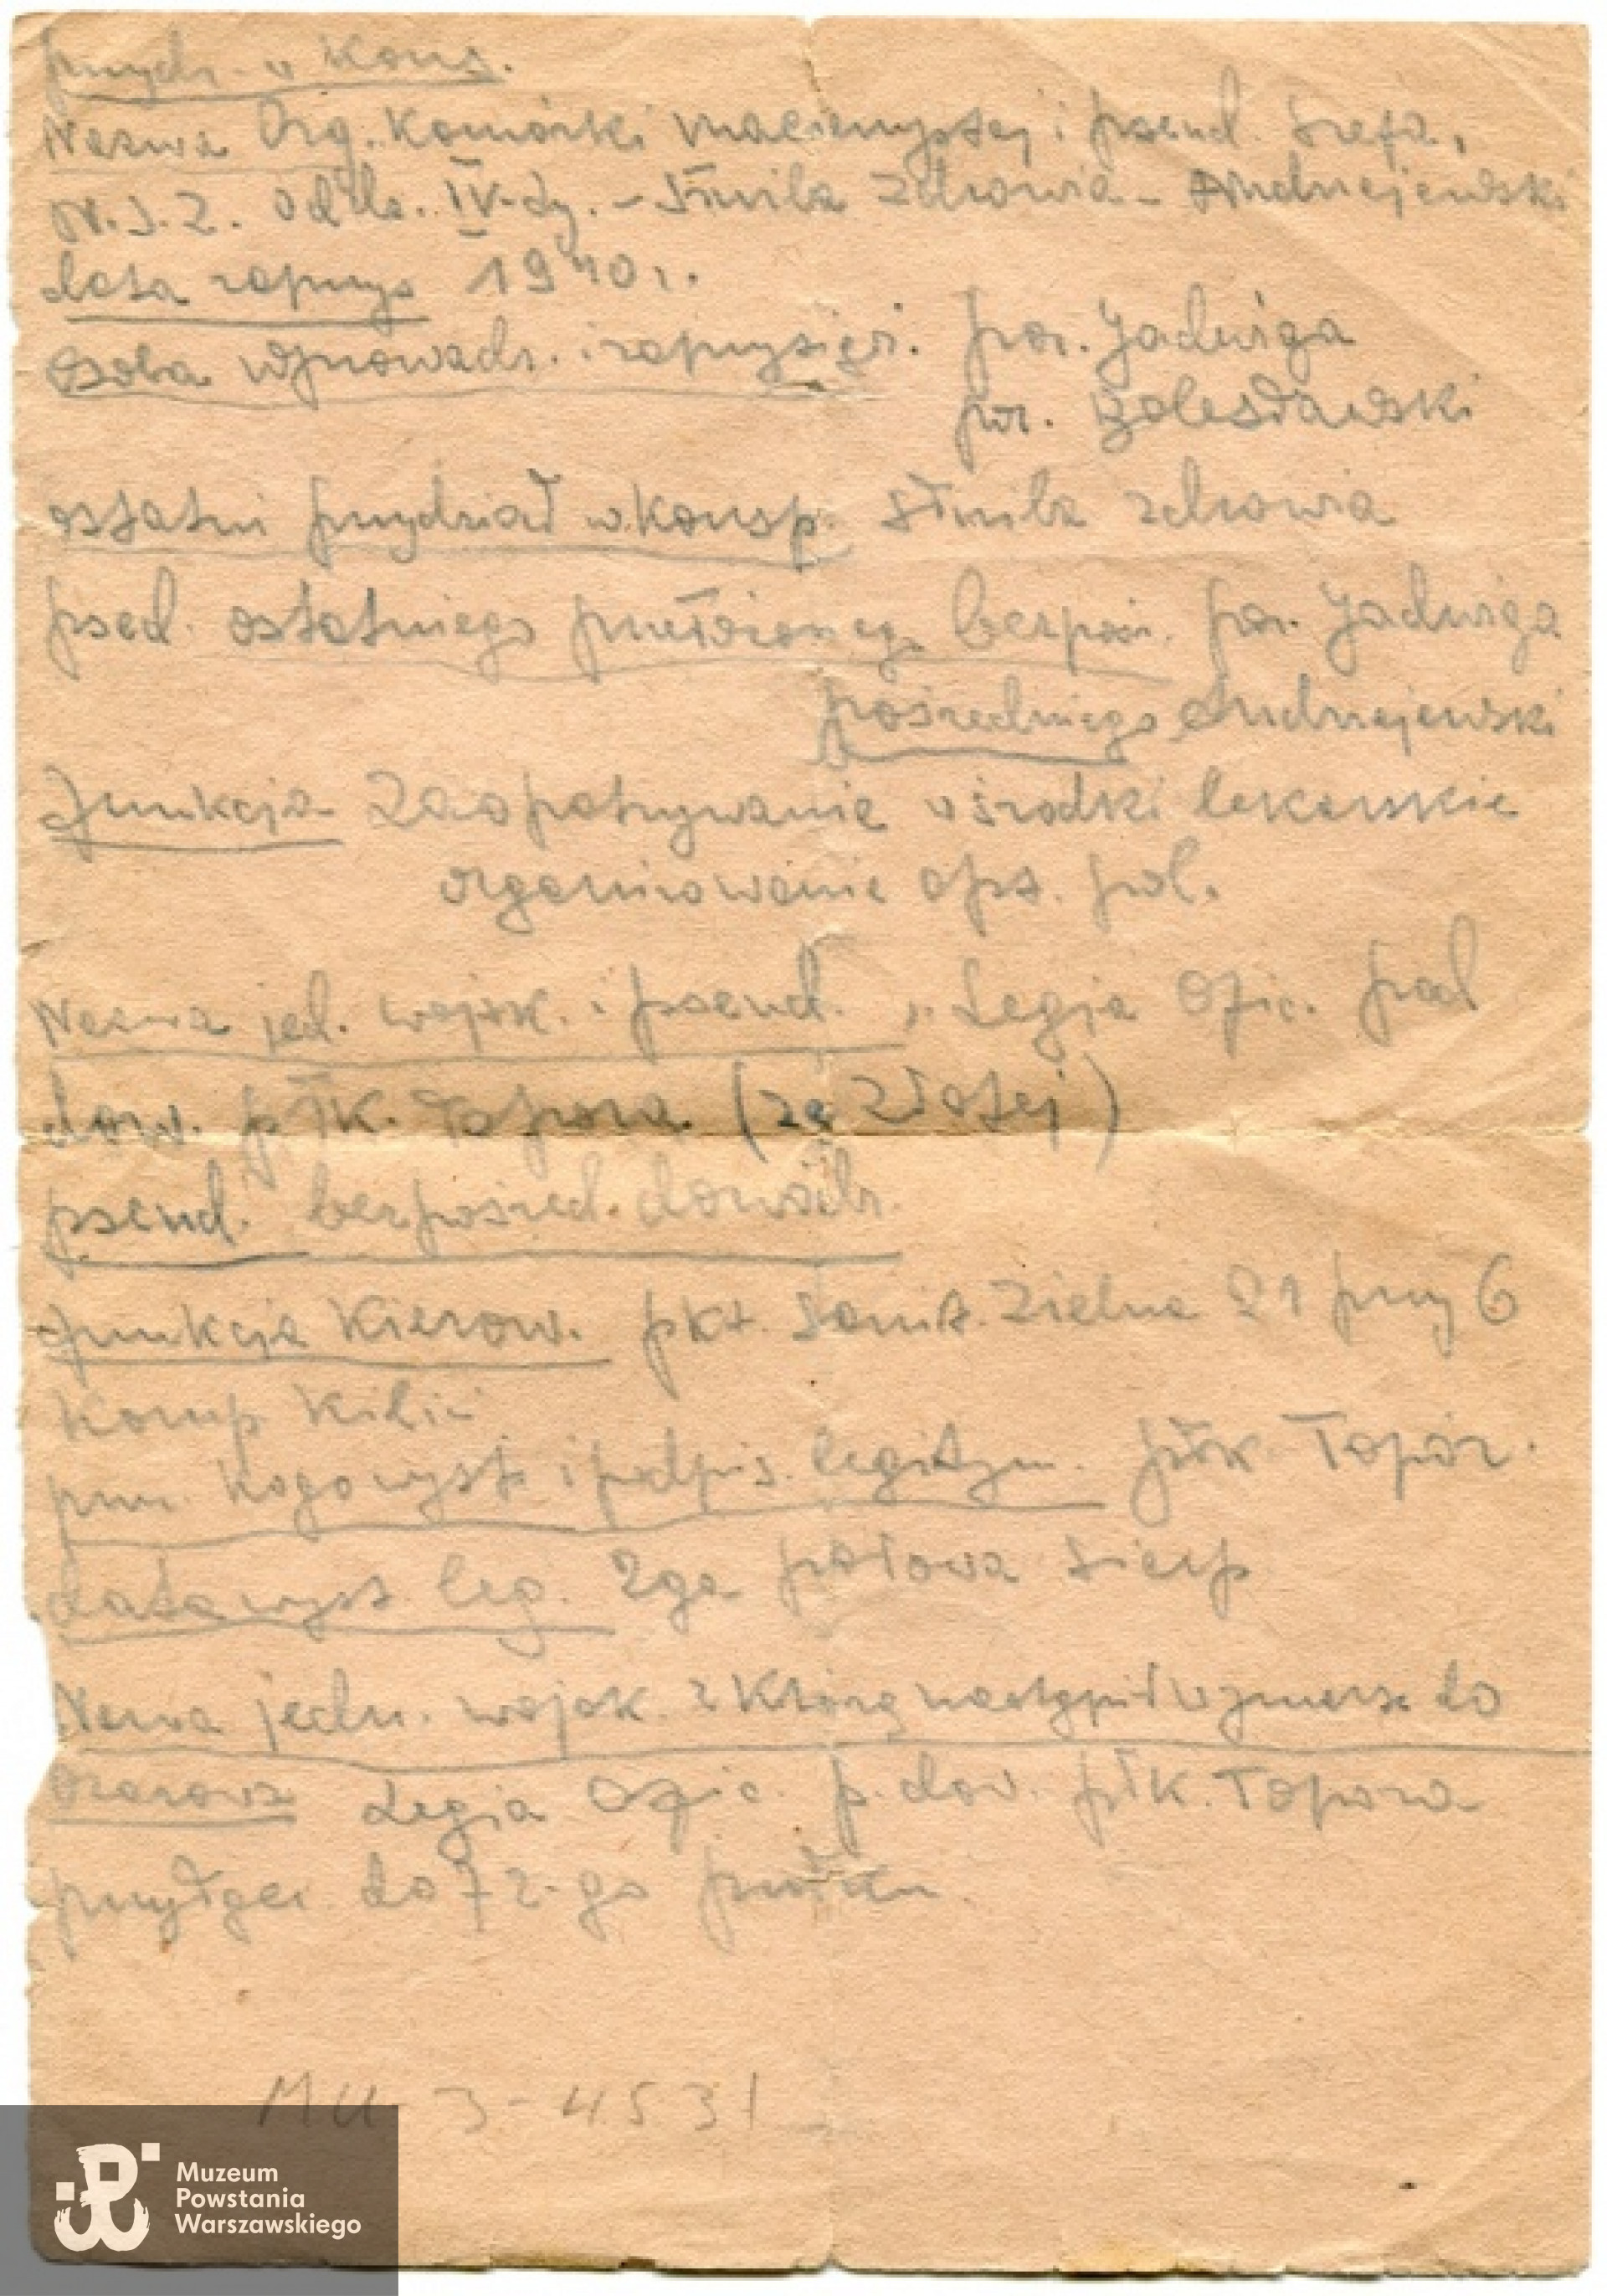 przydz. w Kons.
Nazwa Org. Komórki macierzystej i pseud. szefa,
W.S.Z. Oddz. IV-ty. - Służba Zdrowia - Andrzejewski
data zaprzys 1940 r.
Osoba wprowadz. i zaprzysięż. por. Jadwiga
por. Bolesławski
ostatni przydział w Konsp. Służba zdrowia
psed. ostatniego przełożonego bezpoś. por. Jadwiga
pośredniego Andrzejewski
funkcja zaopatrywanie w środki lekarskie
organizowanie opat. pol.
Nazwa jed. wojsk. i pseud. „Legja Ofic. pod
dow. płk. Topora (ze Złotej)
pseud. bezpośred. dowódz.
funkcja Kierow. pkt. Sanit. Zielna 21 przy 6
Komp Kiliń
przez Kogo wyst. i podpis. legitym. płk Topór.
data wyst. leg. 2ga połowa sierp
Nazwa jedn. wojsk. z Którą nastąpił wymarsz do
Ożarowa Legia Ofic. p. dow. płk. Topora
przyłącz. do 72-go pułku.
MU 3-4531
Muzeum
Powstania
Warszawskiego